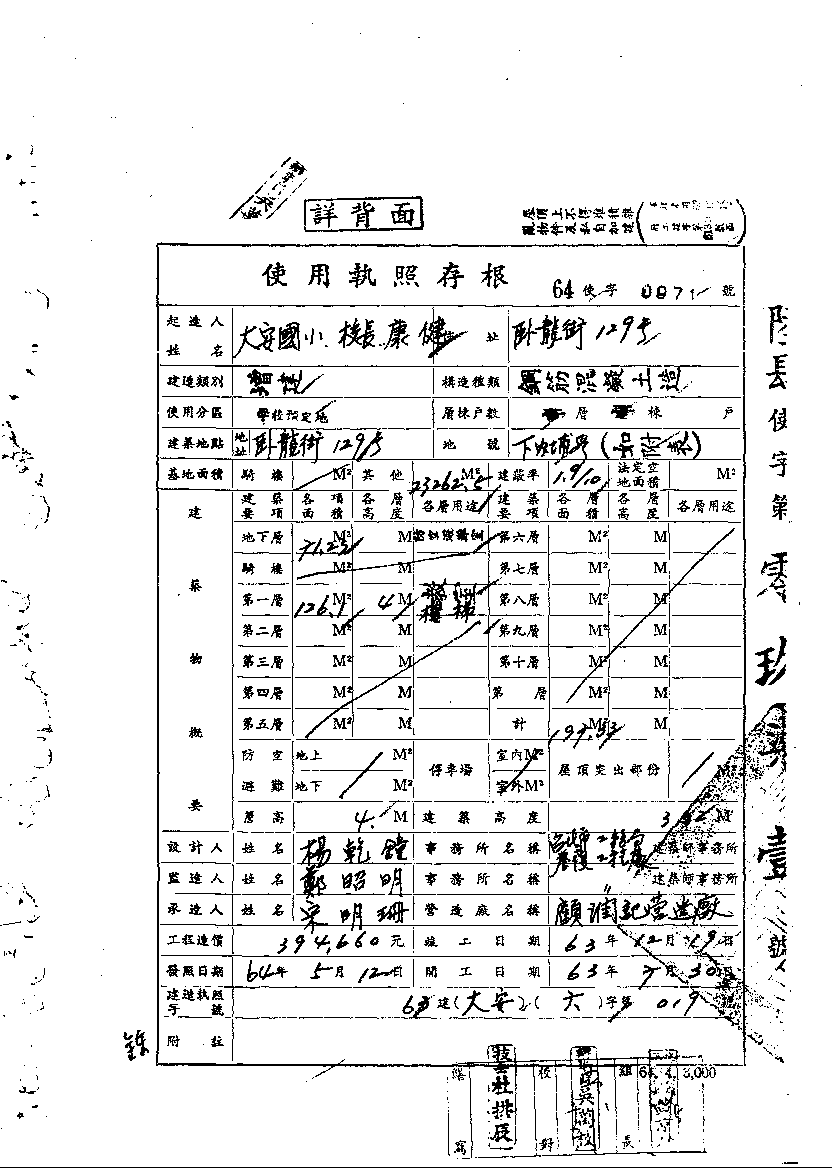 詳背面
使用執照存根
64使字0871號
起造人姓名 大安國小校長康健 住址 臥龍街129号
建造類別 增建 構造種類 鋼筋混凝土造
使用分區 學校預定地 層棟戶數 層 棟 戶
建築地點 地址 臥龍街129号 地號 下內埔号(如附表)
基地面積 騎樓 M² 其他 23262.5 M² 建蔽率 1.9/10 法定空地面積 M²
建築物概要
建築要項 各項面積 各層高度 各層用途 建築要項 各層面積 各層高度 各層用途
地下層 71.23 M² M 第六層 M² M
騎樓 M² M 第七層 M² M
第一層 126.1 4 M 樓梯 第八層 M² M
第二層 M² M 第九層 M² M
第三層 M² M 第十層 M² M
第四層 M² M 第 層 M² M
第五層 M² M 計 197.33 M² M
防空避難 地上 M² 地下 M² 停車場 室內M² 室外M² 屋頂突出部份 M²
層高 4. M 建築高度 M
設計人 姓名 楊乾鐘 事務所名稱 建築師事務所
監造人 姓名 鄭昭明 事務所名稱 〃 建築師事務所
承造人 姓名 宋明珊 營造廠名稱 顧潤記營造廠
工程造價 394,660元 竣工日期 63年12月19日
發照日期 64年5月12日 開工日期 63年7月30日
建造執照字號 63建(大安)(六)字第019號
附註
繕寫 校對 組長 64.4.3,000
使字第零玖 壹號